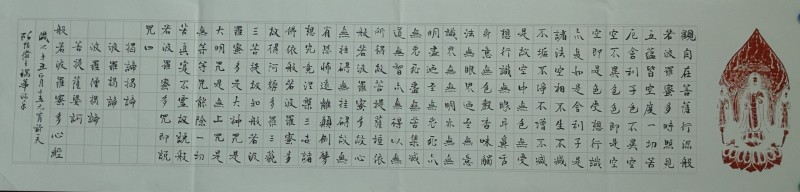 觀自在菩薩行深般
若波羅蜜多時照見
五蘊皆空度一切苦
厄舍利子色不異空
空不異色色即是空
空即是色受想行識
亦復如是舍利子是
諸法空相不生不滅
不垢不淨不增不減
是故空中無色無受
想行識無眼耳鼻舌
身意無色聲香味觸
法無眼界乃至無意
識界無無明亦無無
明盡乃至無老死亦
無老死盡無苦集滅
道無智亦無得以無
所得故菩提薩埵依
般若波羅蜜多故心
無罣礙無罣礙故無
有恐怖遠離顛倒夢
想究竟涅槃三世諸
佛依般若波羅蜜多
故得阿耨多羅三藐
三菩提故知般若波
羅蜜多是大神咒是
大明咒是無上咒是
無等等咒能除一切
苦真實不虛故說般
若波羅蜜多咒即說
咒曰
揭諦揭諦
波羅揭諦
波羅僧揭諦
菩提薩婆訶
般若波羅蜜多心經